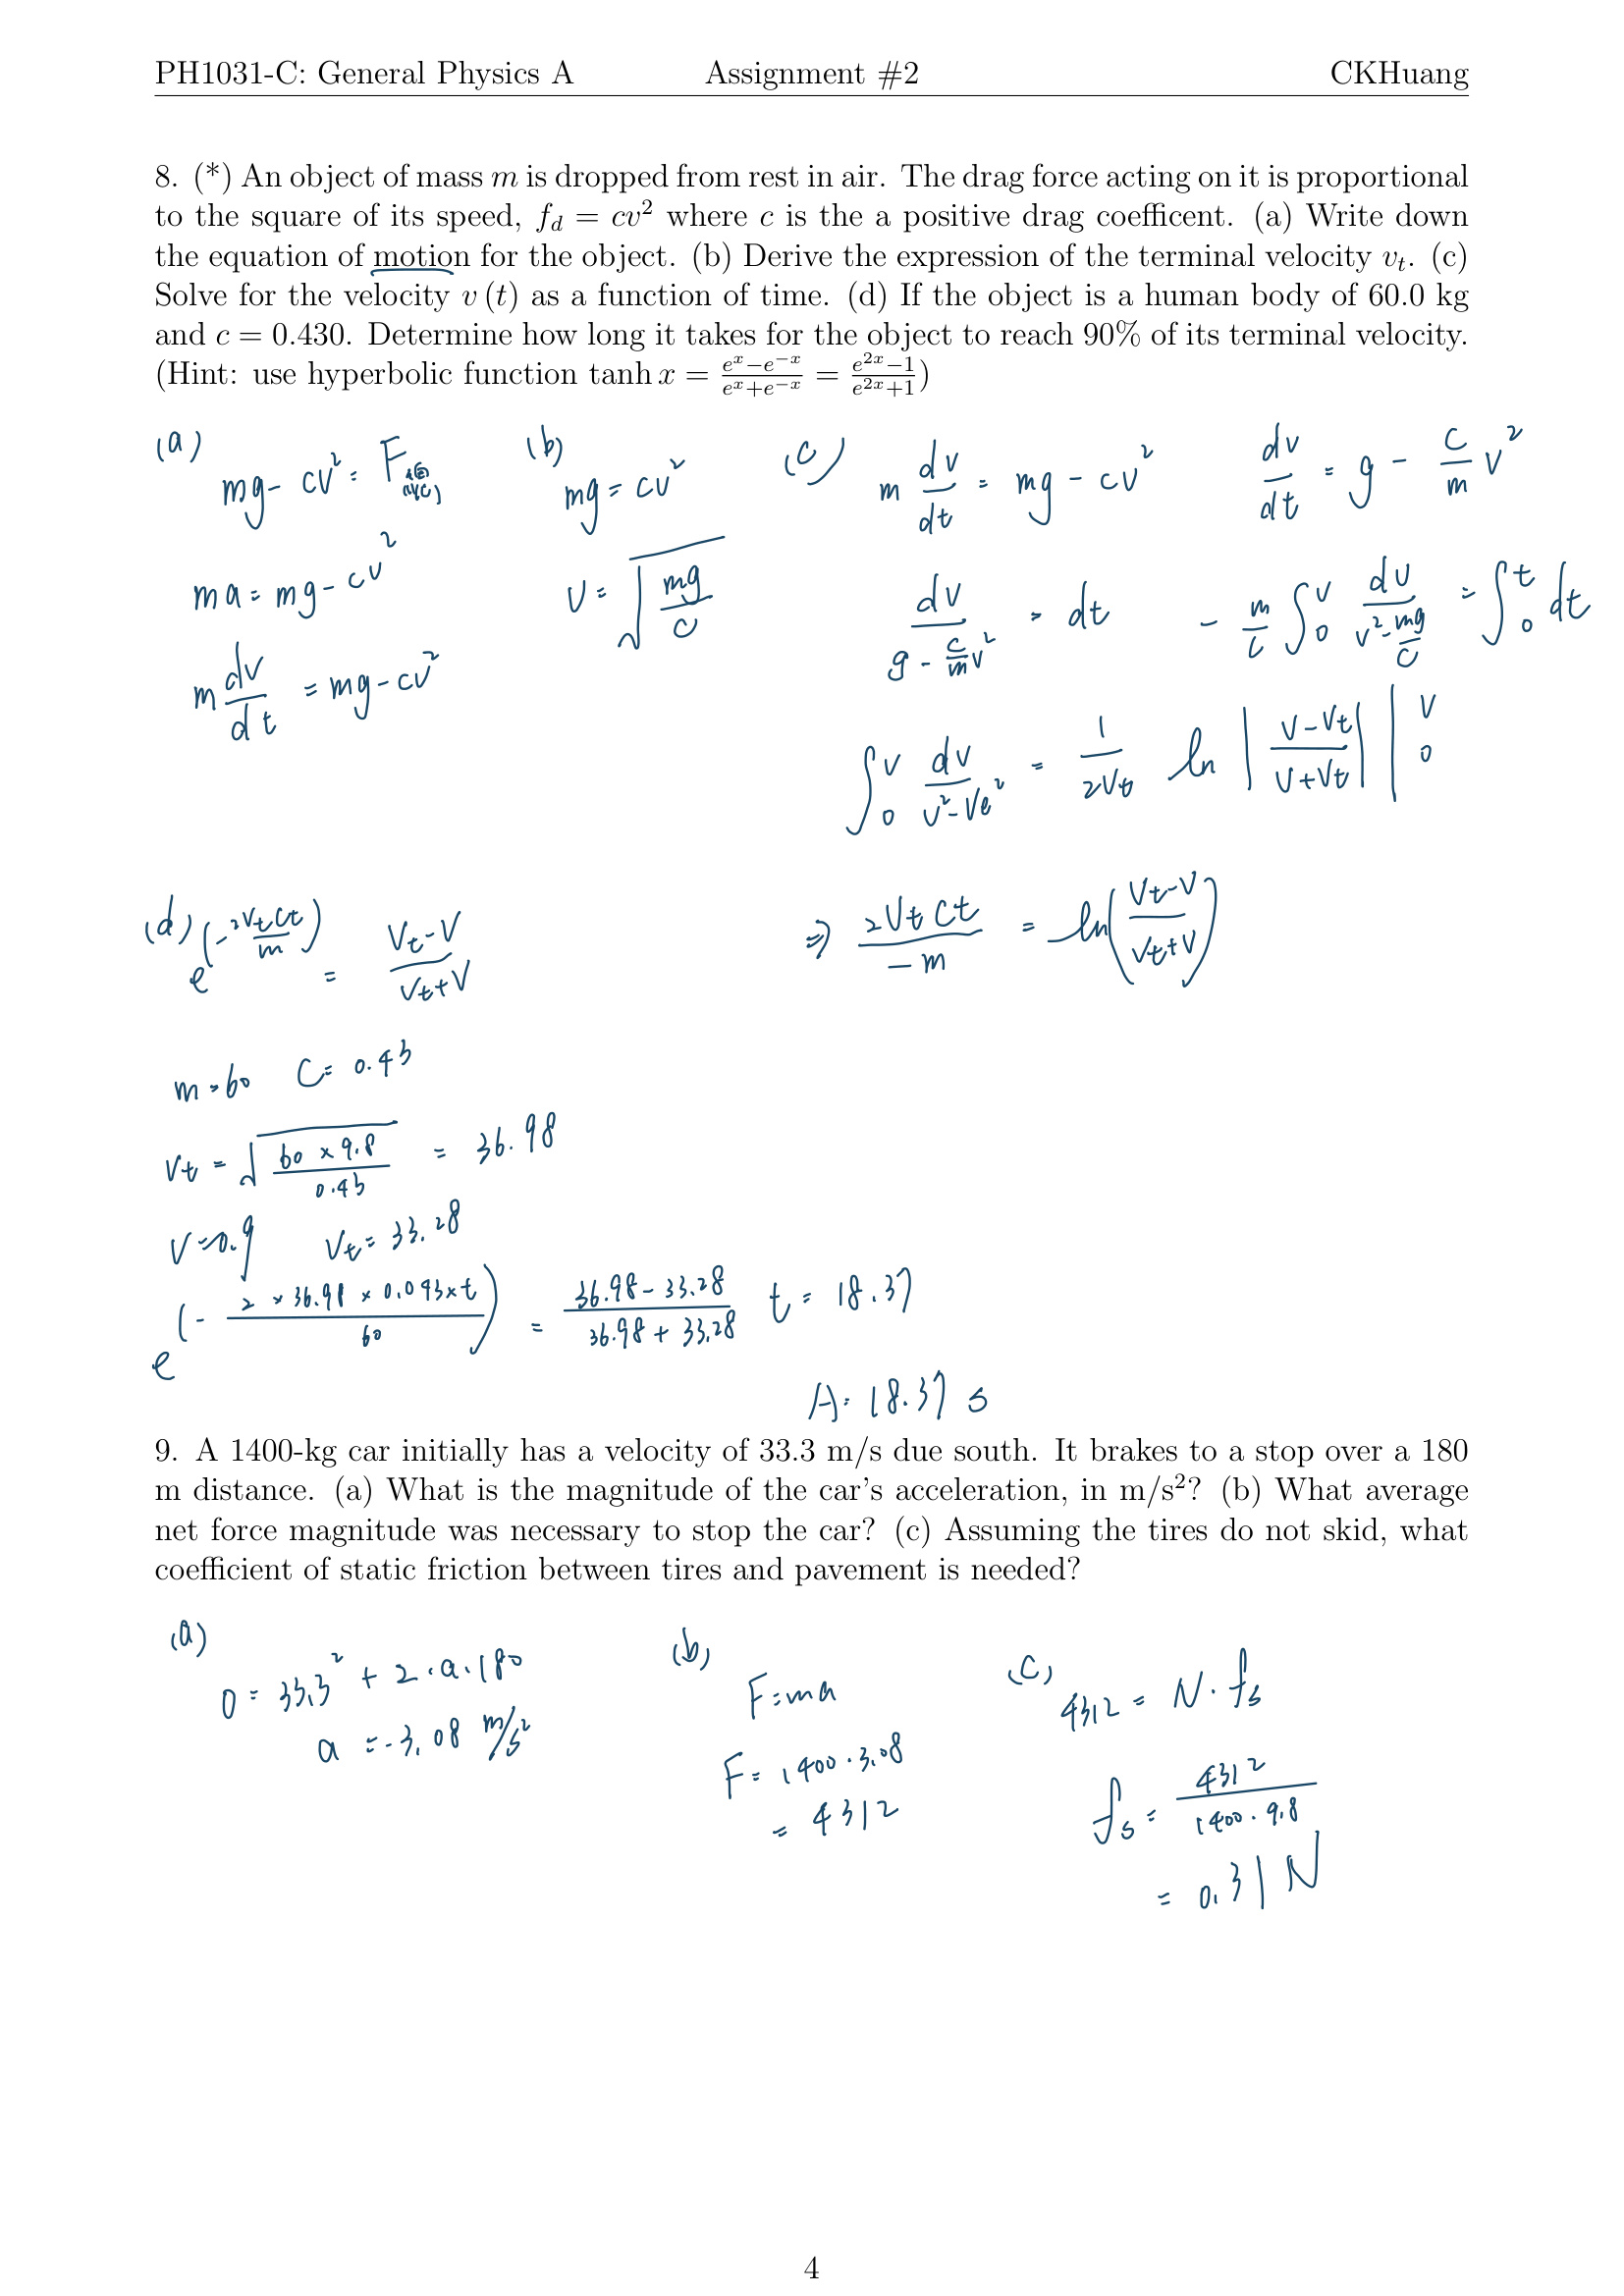 PH1031-C: General Physics A Assignment #2 CKHuang
8. (*) An object of mass m is dropped from rest in air. The drag force acting on it is proportional
to the square of its speed, f_d = cv² where c is the a positive drag coefficent. (a) Write down
the equation of motion for the object. (b) Derive the expression of the terminal velocity v_t. (c)
Solve for the velocity v (t) as a function of time. (d) If the object is a human body of 60.0 kg
and c = 0.430. Determine how long it takes for the object to reach 90% of its terminal velocity.
(Hint: use hyperbolic function tanh x = (e^x−e^−x)/(e^x+e^−x) = (e^2x−1)/(e^2x+1))
(a)
mg - cv² = F
ma = mg - cv²
m dv/dt = mg - cv²
(b)
mg = cv²
v = √(mg/c)
(c)
m dv/dt = mg - cv²
dv/dt = g - c/m v²
dv/(g - c/m v²) = dt
- m/c ∫₀^v dv/(v² - mg/c) = ∫₀^t dt
∫₀^v dv/(v² - Vt²) = 1/(2Vt) ln |(V-Vt)/(V+Vt)| |₀^v
⇒ 2Vt ct/(-m) = ln((Vt-V)/(Vt+V))
(d)
e^(- 2Vt ct/m) = (Vt-V)/(Vt+V)
m=60 C= 0.43
Vt = √((60 × 9.8)/0.43) = 36.98
V=0.9 Vt = 33.28
e^(- (2 × 36.98 × 0.043×t)/60) = (36.98 - 33.28)/(36.98 + 33.28) t = 18.37
A: 18.37 s
9. A 1400-kg car initially has a velocity of 33.3 m/s due south. It brakes to a stop over a 180
m distance. (a) What is the magnitude of the car's acceleration, in m/s²? (b) What average
net force magnitude was necessary to stop the car? (c) Assuming the tires do not skid, what
coefficient of static friction between tires and pavement is needed?
(a)
0 = 33.3² + 2·a·180
a = -3.08 m/s²
(b)
F=ma
F= 1400·3.08
= 4312
(c)
4312 = N·fs
fs = 4312/(1400·9.8)
= 0.31 N
4